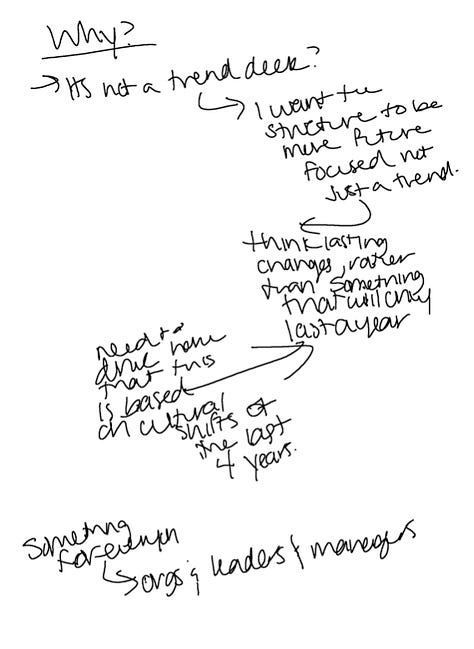 Why?
→ It's not a trend deck?
↳ I want the
structure to be
more future
focused not
just a trend.
think lasting
changes, rather
than something
that will only
last a year
need to
drive home
that this
is based
on cultural
shifts of
the last
4 years.
Something
for everyone
↳ orgs & leaders & managers